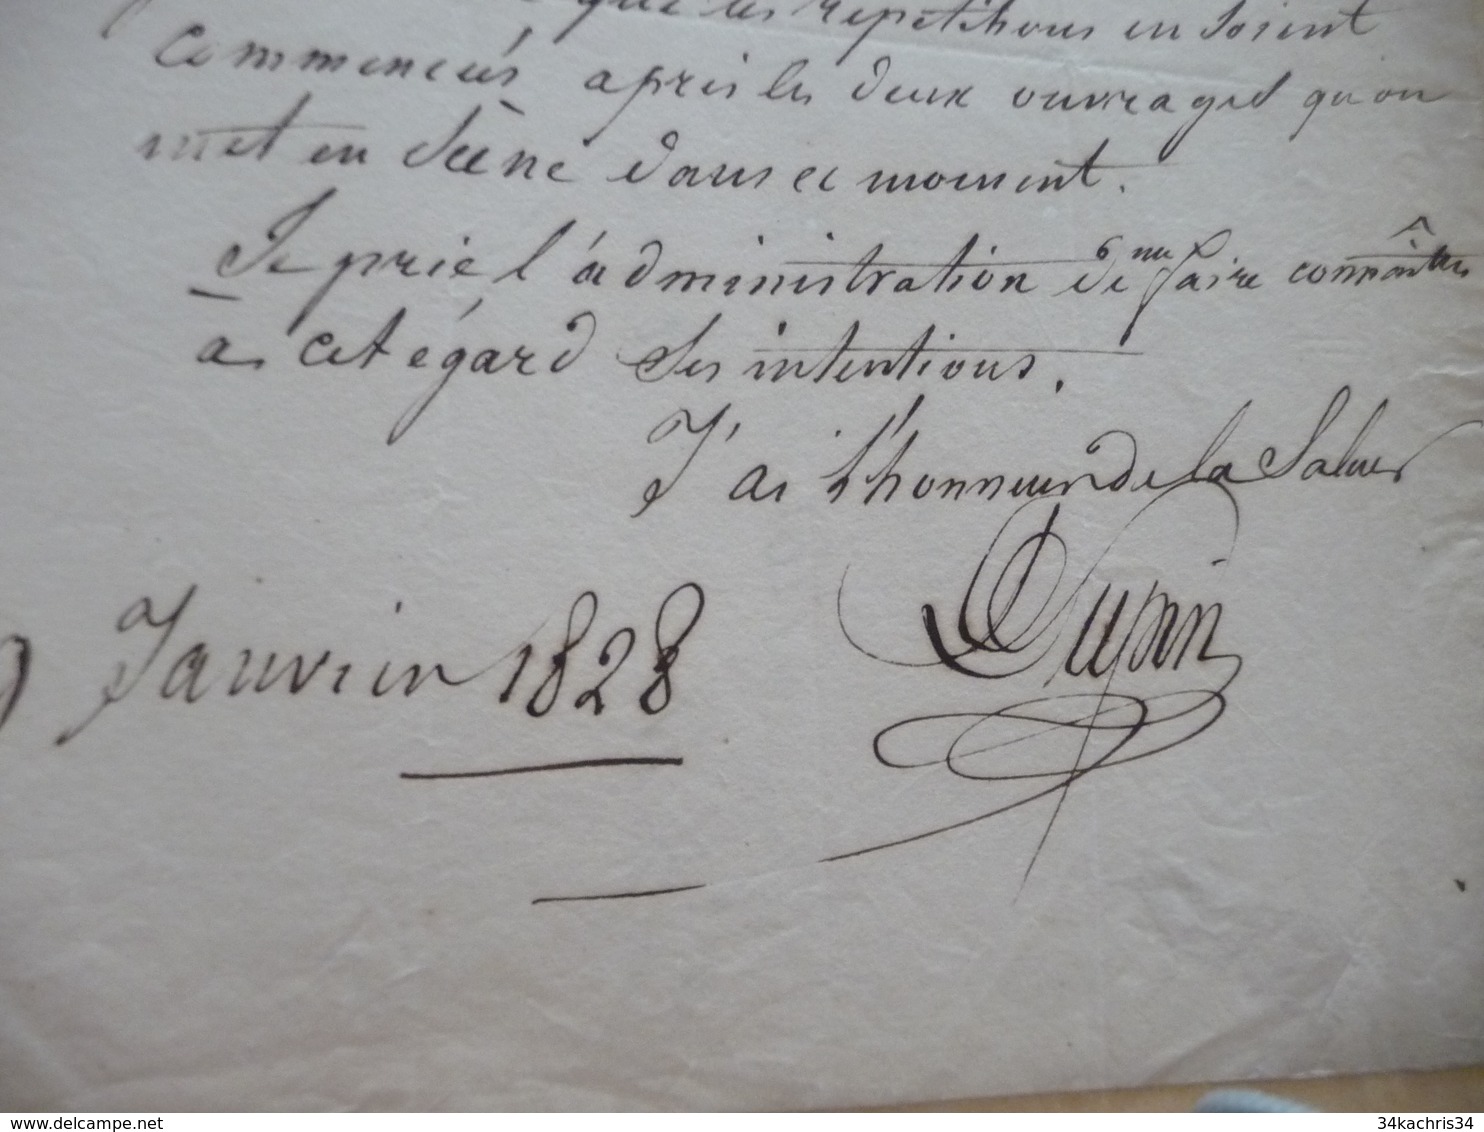 que les répétitions en soient
commencées après les deux ouvrages qu'on
met en scène dans ce moment.
Je prie l'administration de me faire connoître
à cet égard ses intentions.
J'ai l'honneur de la saluer
Janvier 1828
Dupin
www.delcampe.net
34kachris34